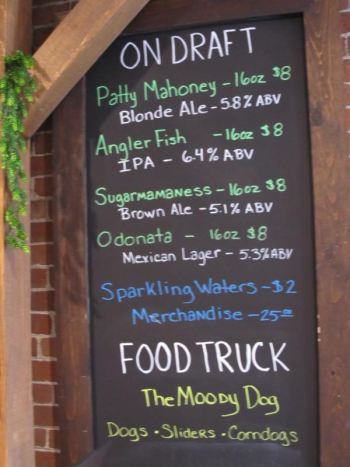 ON DRAFT
Patty Mahoney - 16oz $8
Blonde Ale - 5.8% ABV
Angler Fish - 16oz $8
IPA - 6.4% ABV
Sugarmamaness - 16oz $8
Brown Ale - 5.1% ABV
Odonata - 16oz $8
Mexican Lager - 5.3% ABV
Sparkling Waters - $2
Merchandise - 25.00
FOOD TRUCK
The Moody Dog
Dogs • Sliders • Corndogs